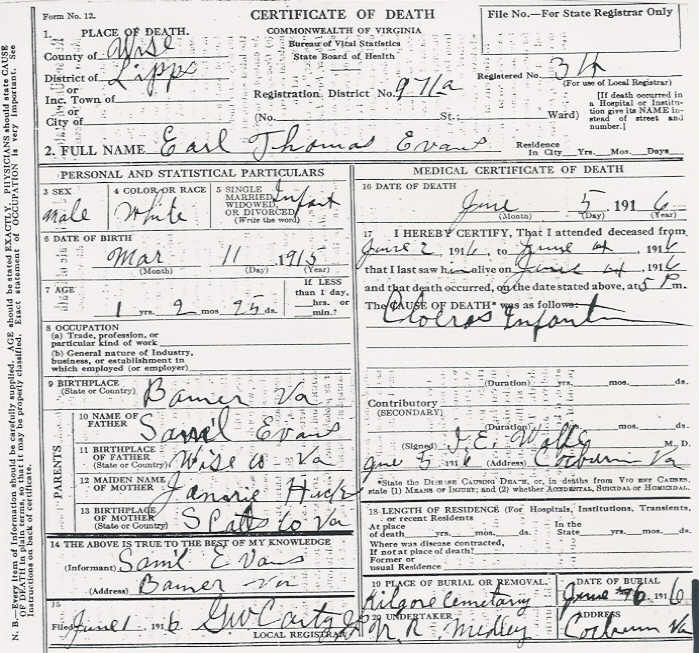 Form No. 12.
CERTIFICATE OF DEATH
File No.—For State Registrar Only
1. PLACE OF DEATH.
County of Wise
District of Lipps
or
Inc. Town of
or
City of
COMMONWEALTH OF VIRGINIA
Bureau of Vital Statistics
State Board of Health
Registration District No. 971a
(No. St.; Ward)
Registered No. 34
(For use of Local Registrar)
[If death occurred in
a Hospital or Institu-
tion give its NAME in-
stead of street and
number.]
2. FULL NAME Earl Thomas Evans
Residence
In City Yrs. Mos. Days
PERSONAL AND STATISTICAL PARTICULARS
3 SEX
male
4 COLOR OR RACE
White
5 SINGLE
MARRIED
WIDOWED,
OR DIVORCED
(Write the word)
Infant
6 DATE OF BIRTH
Mar 11 1915
(Month) (Day) (Year)
7 AGE
1 yrs. 2 mos 25 ds.
If LESS
than 1 day,
hrs. or
min.?
8 OCCUPATION
(a) Trade, profession, or
particular kind of work
(b) General nature of Industry,
business, or establishment in
which employed (or employer)
9 BIRTHPLACE
(State or Country)
Banner Va
PARENTS
10 NAME OF
FATHER
Sam'l Evans
11 BIRTHPLACE
OF FATHER
(State or Country)
Wise co Va
12 MAIDEN NAME
OF MOTHER
13 BIRTHPLACE
OF MOTHER
(State or Country)
Scott co Va
14 THE ABOVE IS TRUE TO THE BEST OF MY KNOWLEDGE
(Informant) Sam'l Evans
(Address) Banner Va
15
Filed June 1916
LOCAL REGISTRAR
MEDICAL CERTIFICATE OF DEATH
16 DATE OF DEATH
June 5 1916
(Month) (Day) (Year)
17 I HEREBY CERTIFY, That I attended deceased from
June 2 1916 to June 4 1916
that I last saw him alive on June 4 1916
and that death occurred, on the date stated above, at 5 P m.
The CAUSE OF DEATH* was as follows:
Infant
(Duration) yrs. mos. ds.
Contributory
(SECONDARY)
(Duration) yrs. mos. ds.
(Signed) J. E. Wolfe M. D.
June 5 1916 (Address) Coeburn Va
*State the DISEASE CAUSING DEATH, or, in deaths from VIOLENT CAUSES,
state (1) MEANS OF INJURY; and (2) whether ACCIDENTAL, SUICIDAL or HOMICIDAL.
18 LENGTH OF RESIDENCE (For Hospitals, Institutions, Transients,
or recent Residents
At place
of death yrs. mos. ds.
In the
State yrs. mos. ds.
Where was disease contracted,
If not at place of death?
Former or
usual Residence
19 PLACE OF BURIAL OR REMOVAL.
Kilgore Cemetary
DATE OF BURIAL
June 6 1916
20 UNDERTAKER
Medley
ADDRESS
Coeburn Va
N. B.—Every item of information should be carefully supplied. AGE should be stated EXACTLY. PHYSICIANS should state CAUSE
OF DEATH in plain terms, so that it may be properly classified. Exact statement of OCCUPATION is very important. See
Instructions on back of certificate.